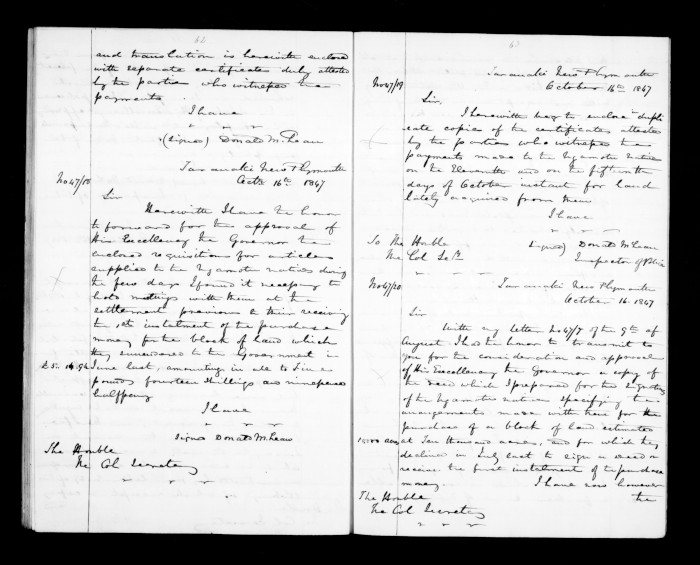 62
and translation is herewith enclosed
with separate certificates duly attested
by the parties who witness the
payments.
I have
(signed) Donald McLean
Taranaki New Plymouth
Octr 16th 1847
No 47/18
Sir
Herewith I have the honor
to forward for the approval of
His Excellency the Governor the
enclosed requisition for articles
supplied to the Ngamotu natives during
the few days I found it necessary to
hold meetings with them at the
settlement previous to their receiving
the 1st instalment of the purchase
money for the block of land which
they surrendered to the Government in
£5. 14. 9½ June last, amounting in all to Five
pounds fourteen shillings and ninepence
halfpenny
I have
signed Donald McLean
The Honble
The Col Secretary
63
Taranaki New Plymouth
October 16th 1847
No 47/19
Sir,
I herewith beg to enclose dupli
cate copies of the certificates attested
by the parties who witness the
payments made to the Ngamotu natives
on the Eleventh and on the fifteenth
days of October instant for land
lately acquired from them
I have
signed) Donald McLean
Inspector of Police
To The Honble
The Col Secy
No 47/20
Taranaki New Plymouth
October 16. 1847
Sir
With my letter No 47/7 of the 9th of
August I had the honor to transmit to
you for the consideration and approval
of His Excellency the Governor a copy of
the deed which I prepared for the signature
of the Ngamotu natives specifying the
arrangements made with them for the
purchase of a block of land estimated
10,000 acres at Ten thousand acres, and for which they
declined in July last to sign a deed or
receive the first instalment of the purchase
money. I have now however
the
The Honble
The Col Secretary